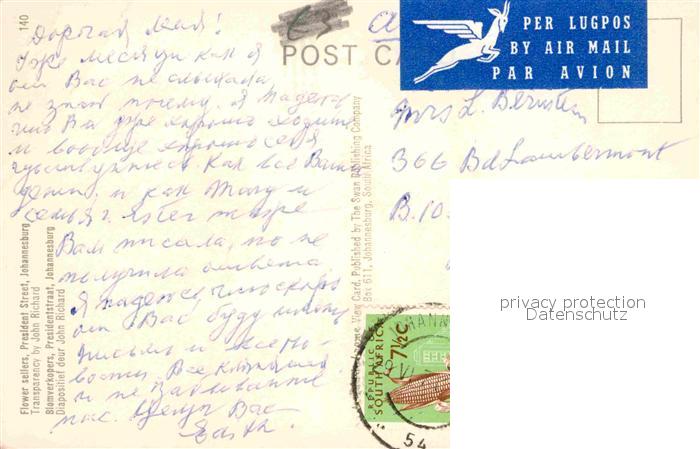 140
Дорогая Лиля!
Уже месяцы как я
от Вас не слыхала
не знаю почему. Я надеюсь
что Вы уже хорошо ходите
и вообще хорошо себя
чувствуете. Как все Ваши
дети, и как
семья? Ester тоже
Вам писала, но не
получила ответа
Я надеюсь, что скоро
от Вас буду иметь
письмо и все но-
вости. Все кланяемся
и не забывайте
нас. Целую Вас
Edith.
POST CA
PER LUGPOS
BY AIR MAIL
PAR AVION
Mrs L. Bernstein
366 Bd Lambermont
B. 10
Flower sellers, President Street, Johannesburg
Transparency by John Richard
Blomverkopers, Presidentstraat, Johannesburg
Diapositief deur John Richard
View Card, Published by The Swan Publishing Company
Box 611, Johannesburg, South Africa
REPUBLIC OF
SOUTH AFRICA
7½C
HANN
VI
54
privacy protection
Datenschutz